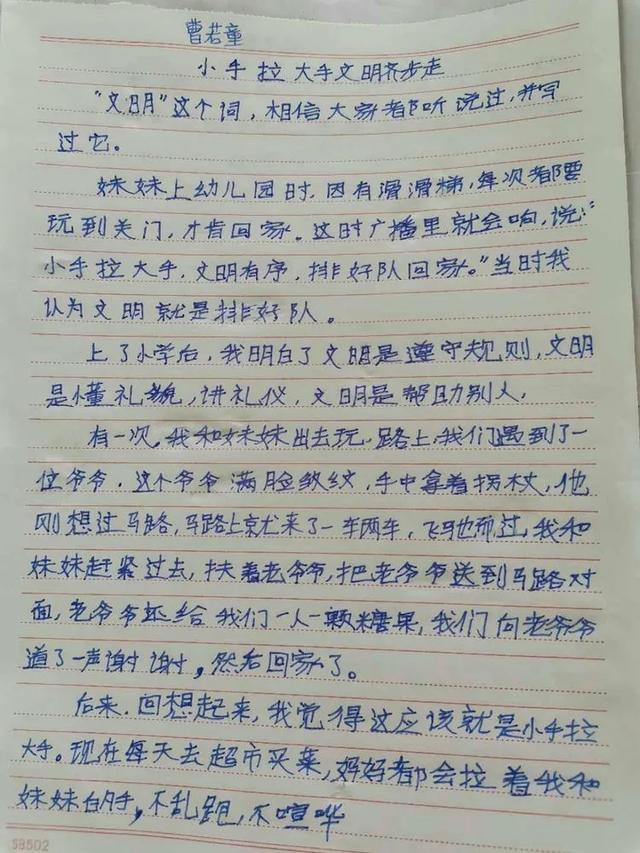 曹若童
小手拉大手文明齐步走
“文明”这个词，相信大家都听说过，并写
过它。
妹妹上幼儿园时，因有滑滑梯，每次都要
玩到关门，才肯回家。这时广播里就会响，说：“
小手拉大手，文明有序，排好队回家。”当时我
认为文明就是排好队。
上了小学后，我明白了文明是遵守规则，文明
是懂礼貌，讲礼仪，文明是帮助别人，
有一次，我和妹妹出去玩，路上，我们遇到了一
位爷爷，这个爷爷满脸皱纹，手中拿着拐杖，他
刚想过马路，马路上就来了一车两车，飞驰而过，我和
妹妹赶紧过去，扶着老爷爷，把老爷爷送到马路对
面，老爷爷还给我们一人一颗糖果，我们向老爷爷
道了一声谢谢，然后回家了。
后来，回想起来，我觉得这应该就是小手拉
大手。现在每天去超市买菜，妈妈都会拉着我和
妹妹的手，不乱跑，不喧哗
58502